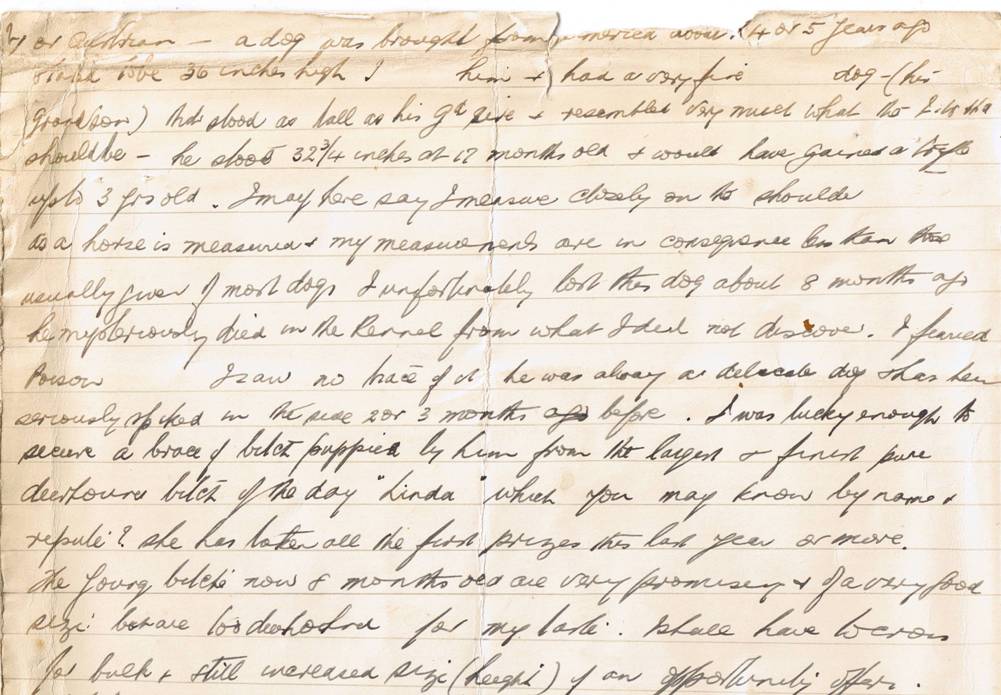 or Austrian — a dog was brought from America about (4 or 5 years ago
stated to be 36 inches high I him & had a very fine dog — (his
(Grandson) that stood as tall as his Gd sire & resembled very much what the
should be — he stood 32 3/4 inches at 17 months old & would have gained a trifle
up to 3 yrs old. I may here say I measure closely on the shoulder
as a horse is measured & my measurements are in consequence less than those
usually given of most dogs I unfortunately lost this dog about 8 months ago
he mysteriously died in the Kennel from what I did not discover. I feared
Poison I saw no trace of it he was always a delicate dog & has been
seriously in the side 2 or 3 months ago before. I was lucky enough to
secure a brace of bitch puppies by him from the largest & finest pure
deerhound bitch of the day "Linda" which you may know by name &
repute? She has taken all the first prizes this last year or more.
The young bitches now 8 months old are very promising & of a very good
size but are too deerhound for my taste. I shall have to cross
for bulk & still increased size (height) if an opportunity offers.